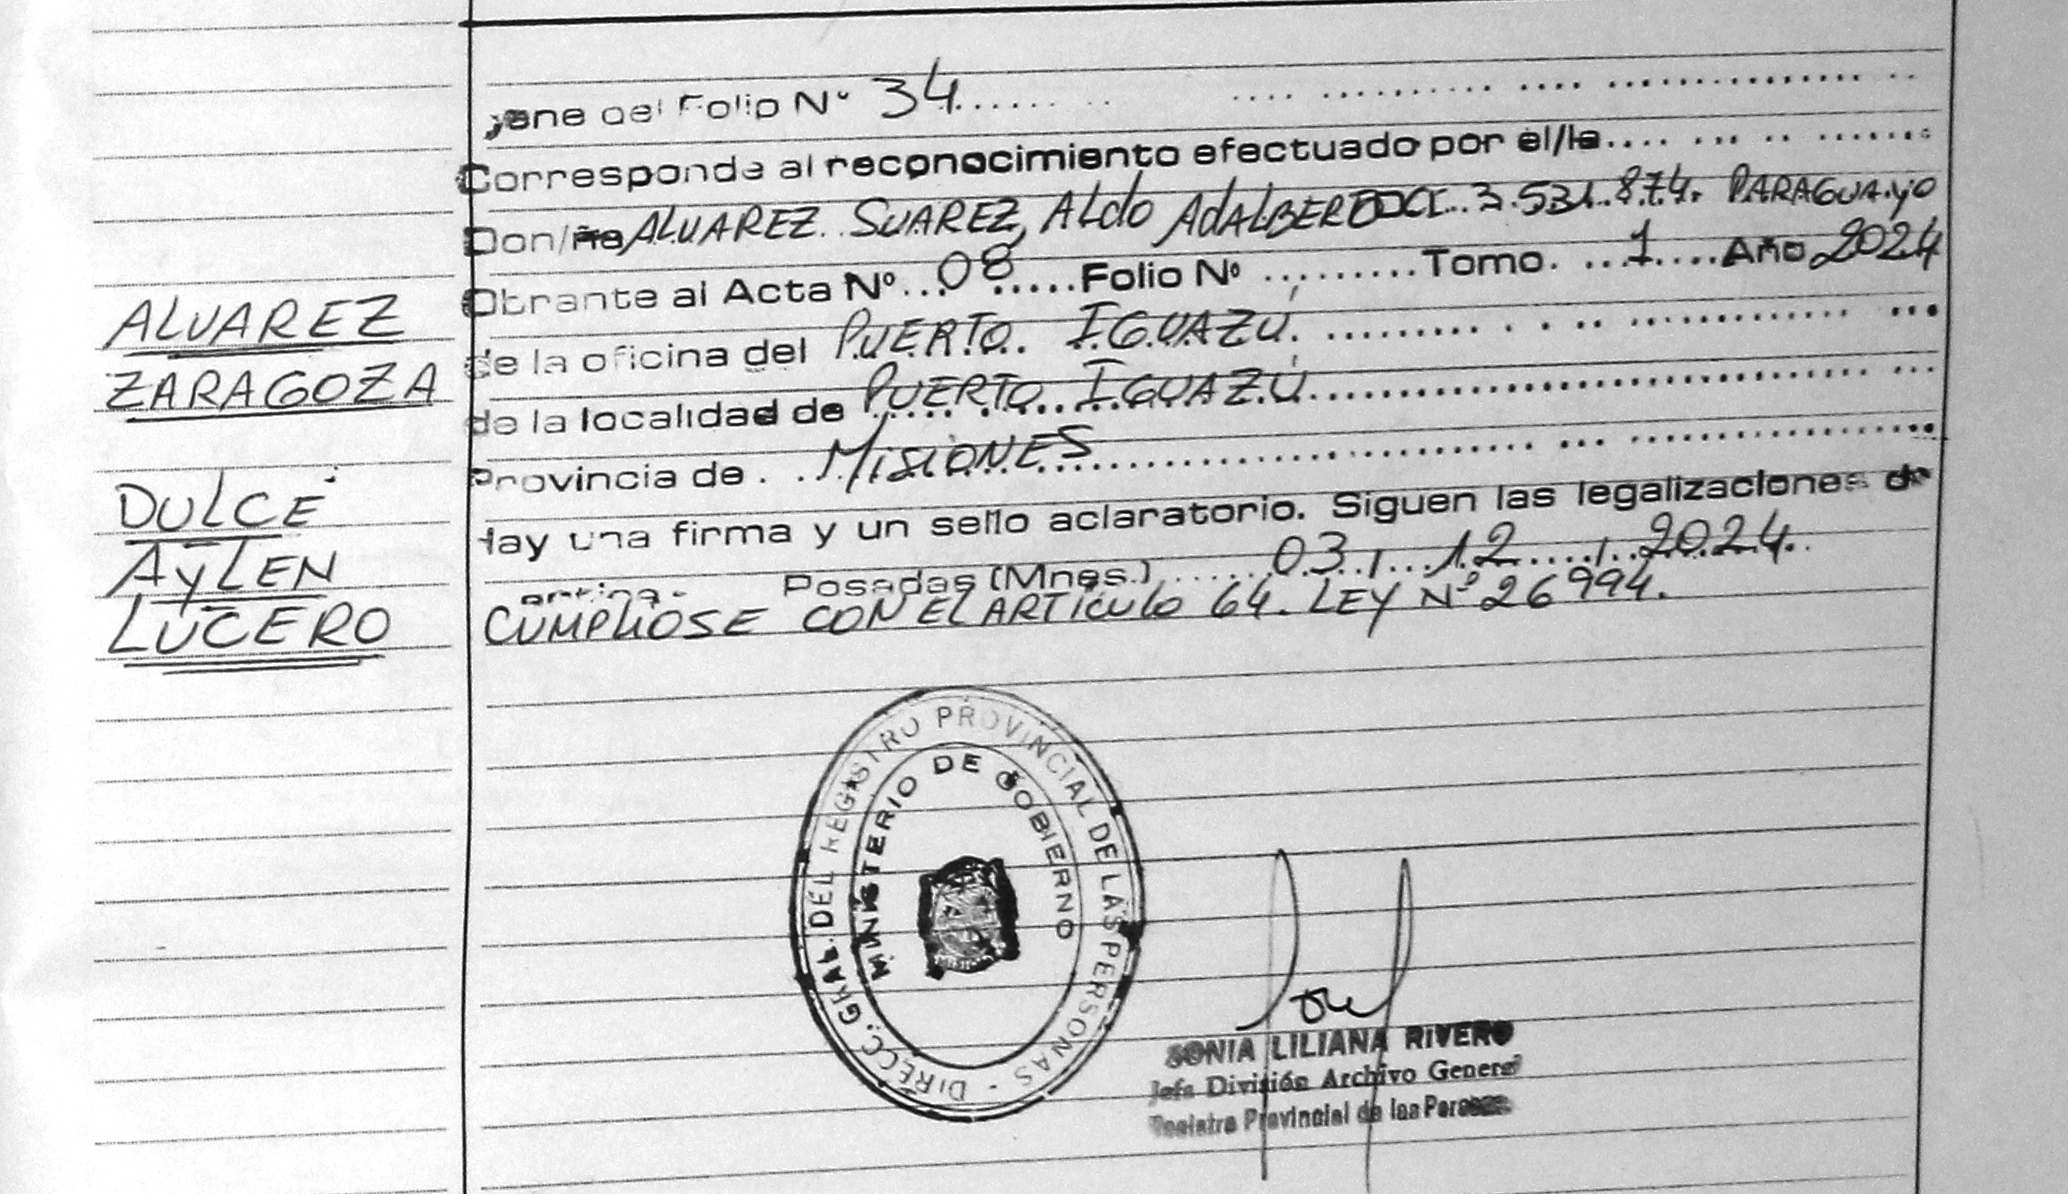 ALVAREZ
ZARAGOZA
DULCE
AYLEN
LUCERO
del Folio Nº 34
Corresponde al reconocimiento efectuado por el/la
Don/ña ALVAREZ SUAREZ, ALDO ADALBERTO CI. 3.531.874. PARAGUAYO
Obrante al Acta Nº 08 Folio Nº Tomo. 1 Año 2024
de la oficina del PUERTO IGUAZÚ.
de la localidad de PUERTO IGUAZÚ
Provincia de MISIONES
Hay una firma y un sello aclaratorio. Siguen las legalizaciones de
Posadas (Mnes.) 03 / 12 / 2024.
CUMPLIOSE CON EL ARTICULO 64. LEY Nº 26994.
DIRECC. GRAL. DEL REGISTRO PROVINCIAL DE LAS PERSONAS -
MINISTERIO DE GOBIERNO
SONIA LILIANA RIVERO
Jefa División Archivo General
Registro Provincial de las Personas